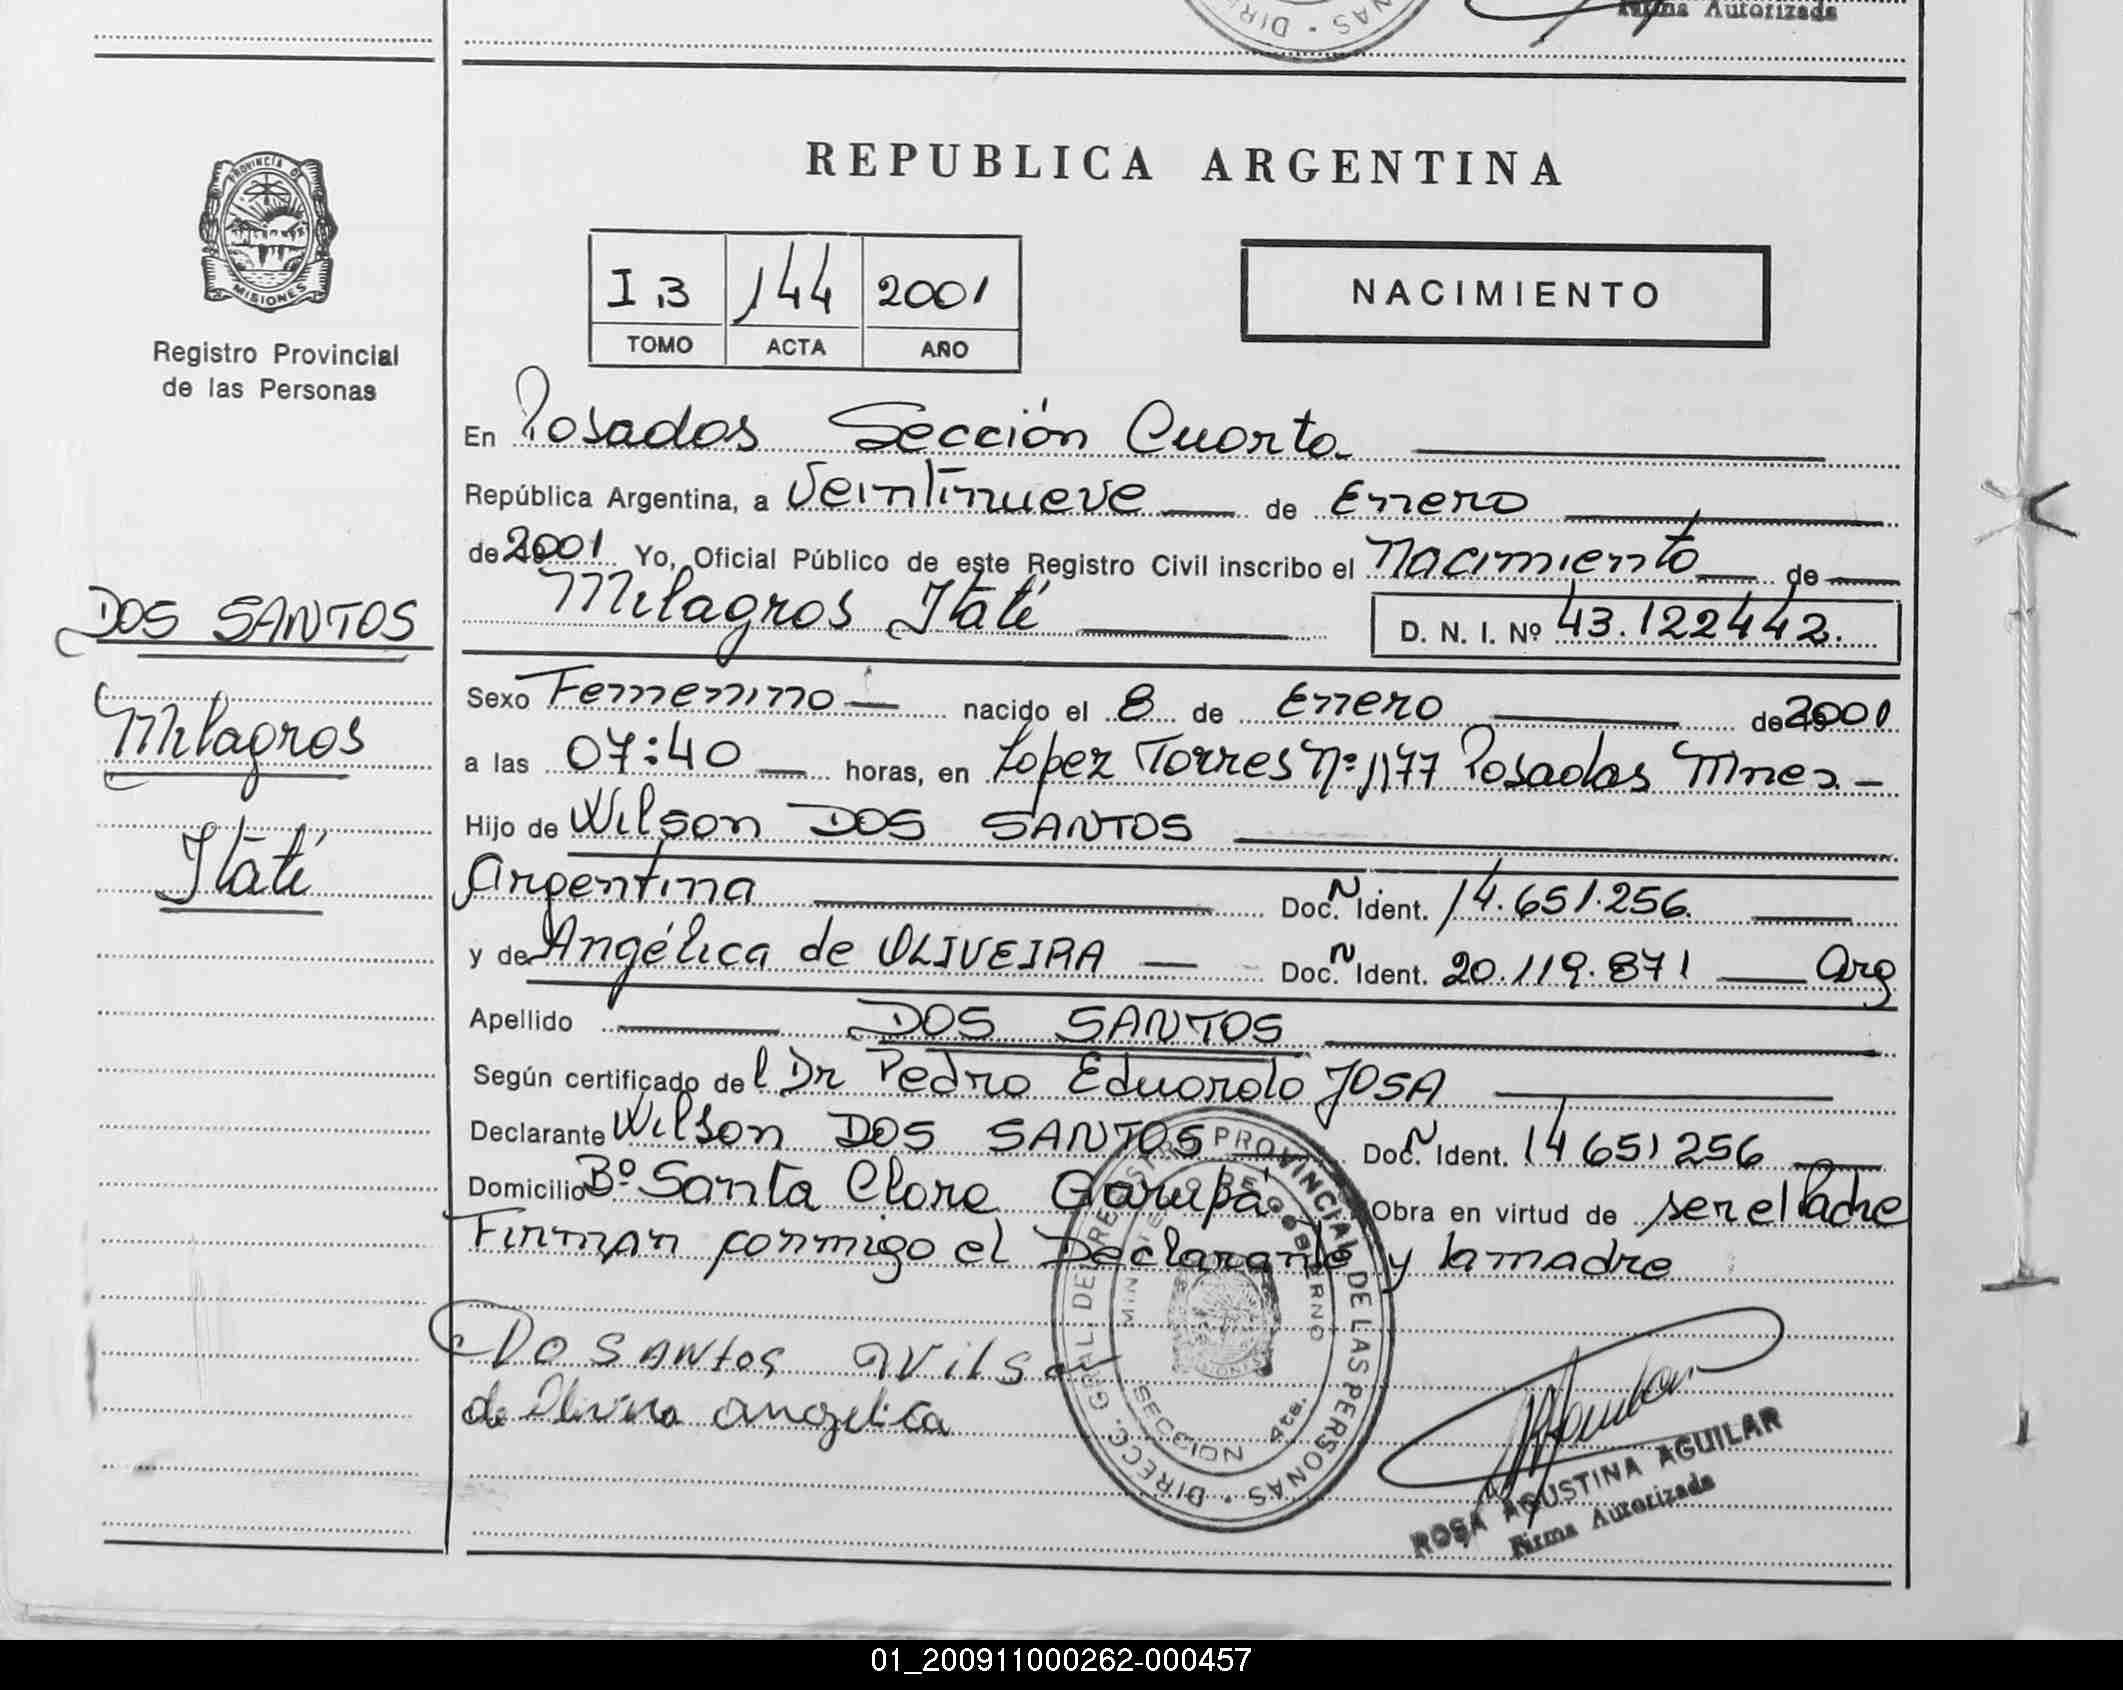 Firma Autorizada
REPUBLICA ARGENTINA
PROVINCIA DE
MISIONES
Registro Provincial
de las Personas
I 3 144 2001
TOMO ACTA AÑO
NACIMIENTO
En Posadas Sección Cuarta
República Argentina, a Veintinueve de Enero
de 2001 Yo, Oficial Público de este Registro Civil inscribo el Nacimiento de
Milagros Itatí D. N. I. Nº 43.122442.
DOS SANTOS
Milagros
Itatí
Sexo Femenino nacido el 8 de Enero de 2001
a las 07:40 horas, en Lopez Torres Nº 1177 Posadas Mnes.
Hijo de Wilson DOS SANTOS
Argentina Doc. N Ident. 14.651.256
y de Angélica de OLIVEIRA Doc. N Ident. 20.119.871 Arg
Apellido DOS SANTOS
Según certificado del Dr Pedro Eduardo JOSA
Declarante Wilson DOS SANTOS Doc. N Ident. 14651256
Domicilio Bº Santa Clara Garupá Obra en virtud de ser el Padre
Firman conmigo el Declarante y la madre
DIRECC. GRAL. DE REGISTRO PROVINCIAL DE LAS PERSONAS
MINISTERIO DE GOBIERNO
SECCION 4ta.
Do SANtos Wilso
de Olivera angelica
ROSA AGUSTINA AGUILAR
Firma Autorizada
01_200911000262-000457